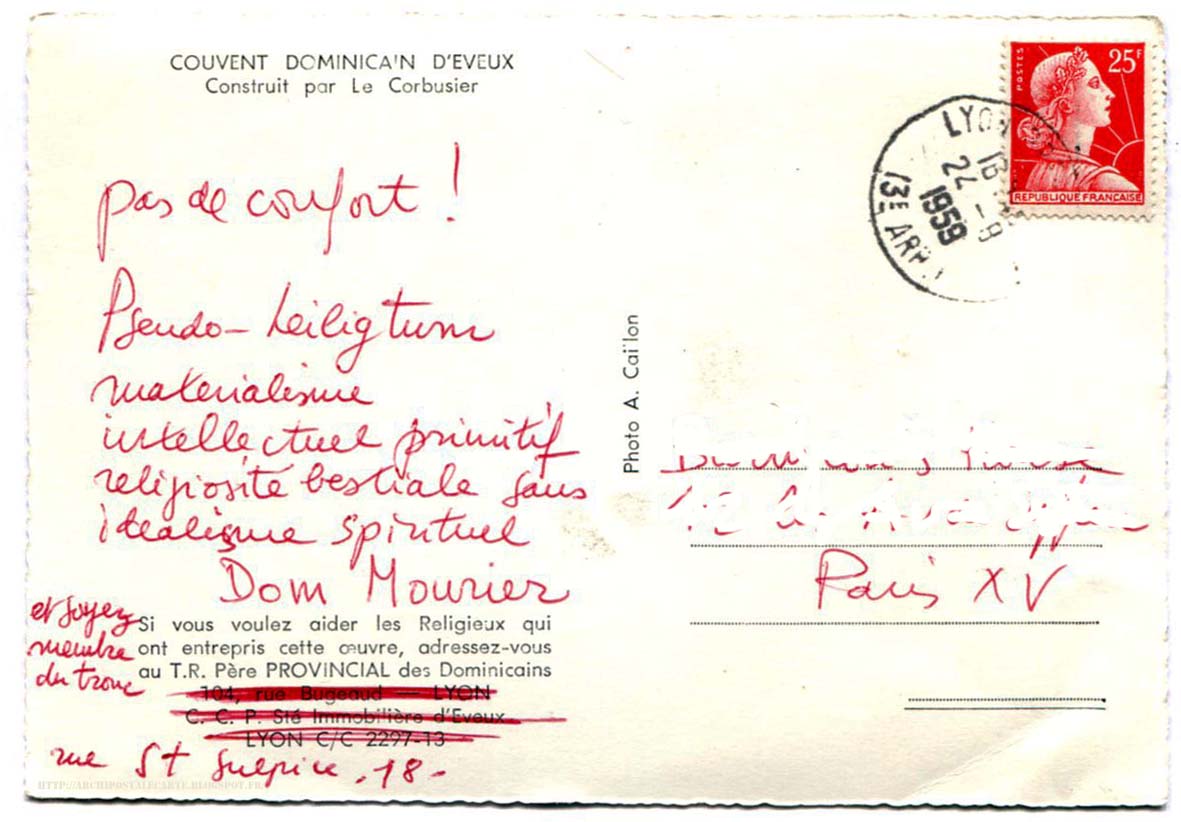 COUVENT DOMINICAIN D'EVEUX
Construit par Le Corbusier
pas de confort !
Pseudo-heiligtum
materialisme
intellectuel primitif
religiosité bestiale sans
idealisme spirituel
Dom Mourier
et soyez
membre
du tronc
Si vous voulez aider les Religieux qui
ont entrepris cette œuvre, adressez-vous
au T.R. Père PROVINCIAL des Dominicains
104, rue Bugeaud — LYON
C. C. P. Sté Immobilière d'Eveux
LYON C/C 2297-13
rue St Sulpice . 18 -
HTTP://ARCHIPOSTALECARTE.BLOGSPOT.FR/
Photo A. Caillon
POSTES
25F
REPUBLIQUE FRANÇAISE
LYON
1959
Paris XV